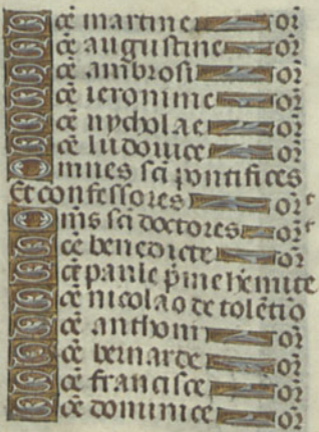 Sce martine or
Sce augustine or
Sce ambrosi or
Sce ieronime or
Sce nycholae or
Sce ludouice or
Omnes sci pontifices
Et confessores or
Oms sci doctores or
Sce benedicte or
Sce paule pme hemite
Sce nicolao de toletio
Sce anthoni or
Sce bernarde or
Sce francisce or
Sce dominice or